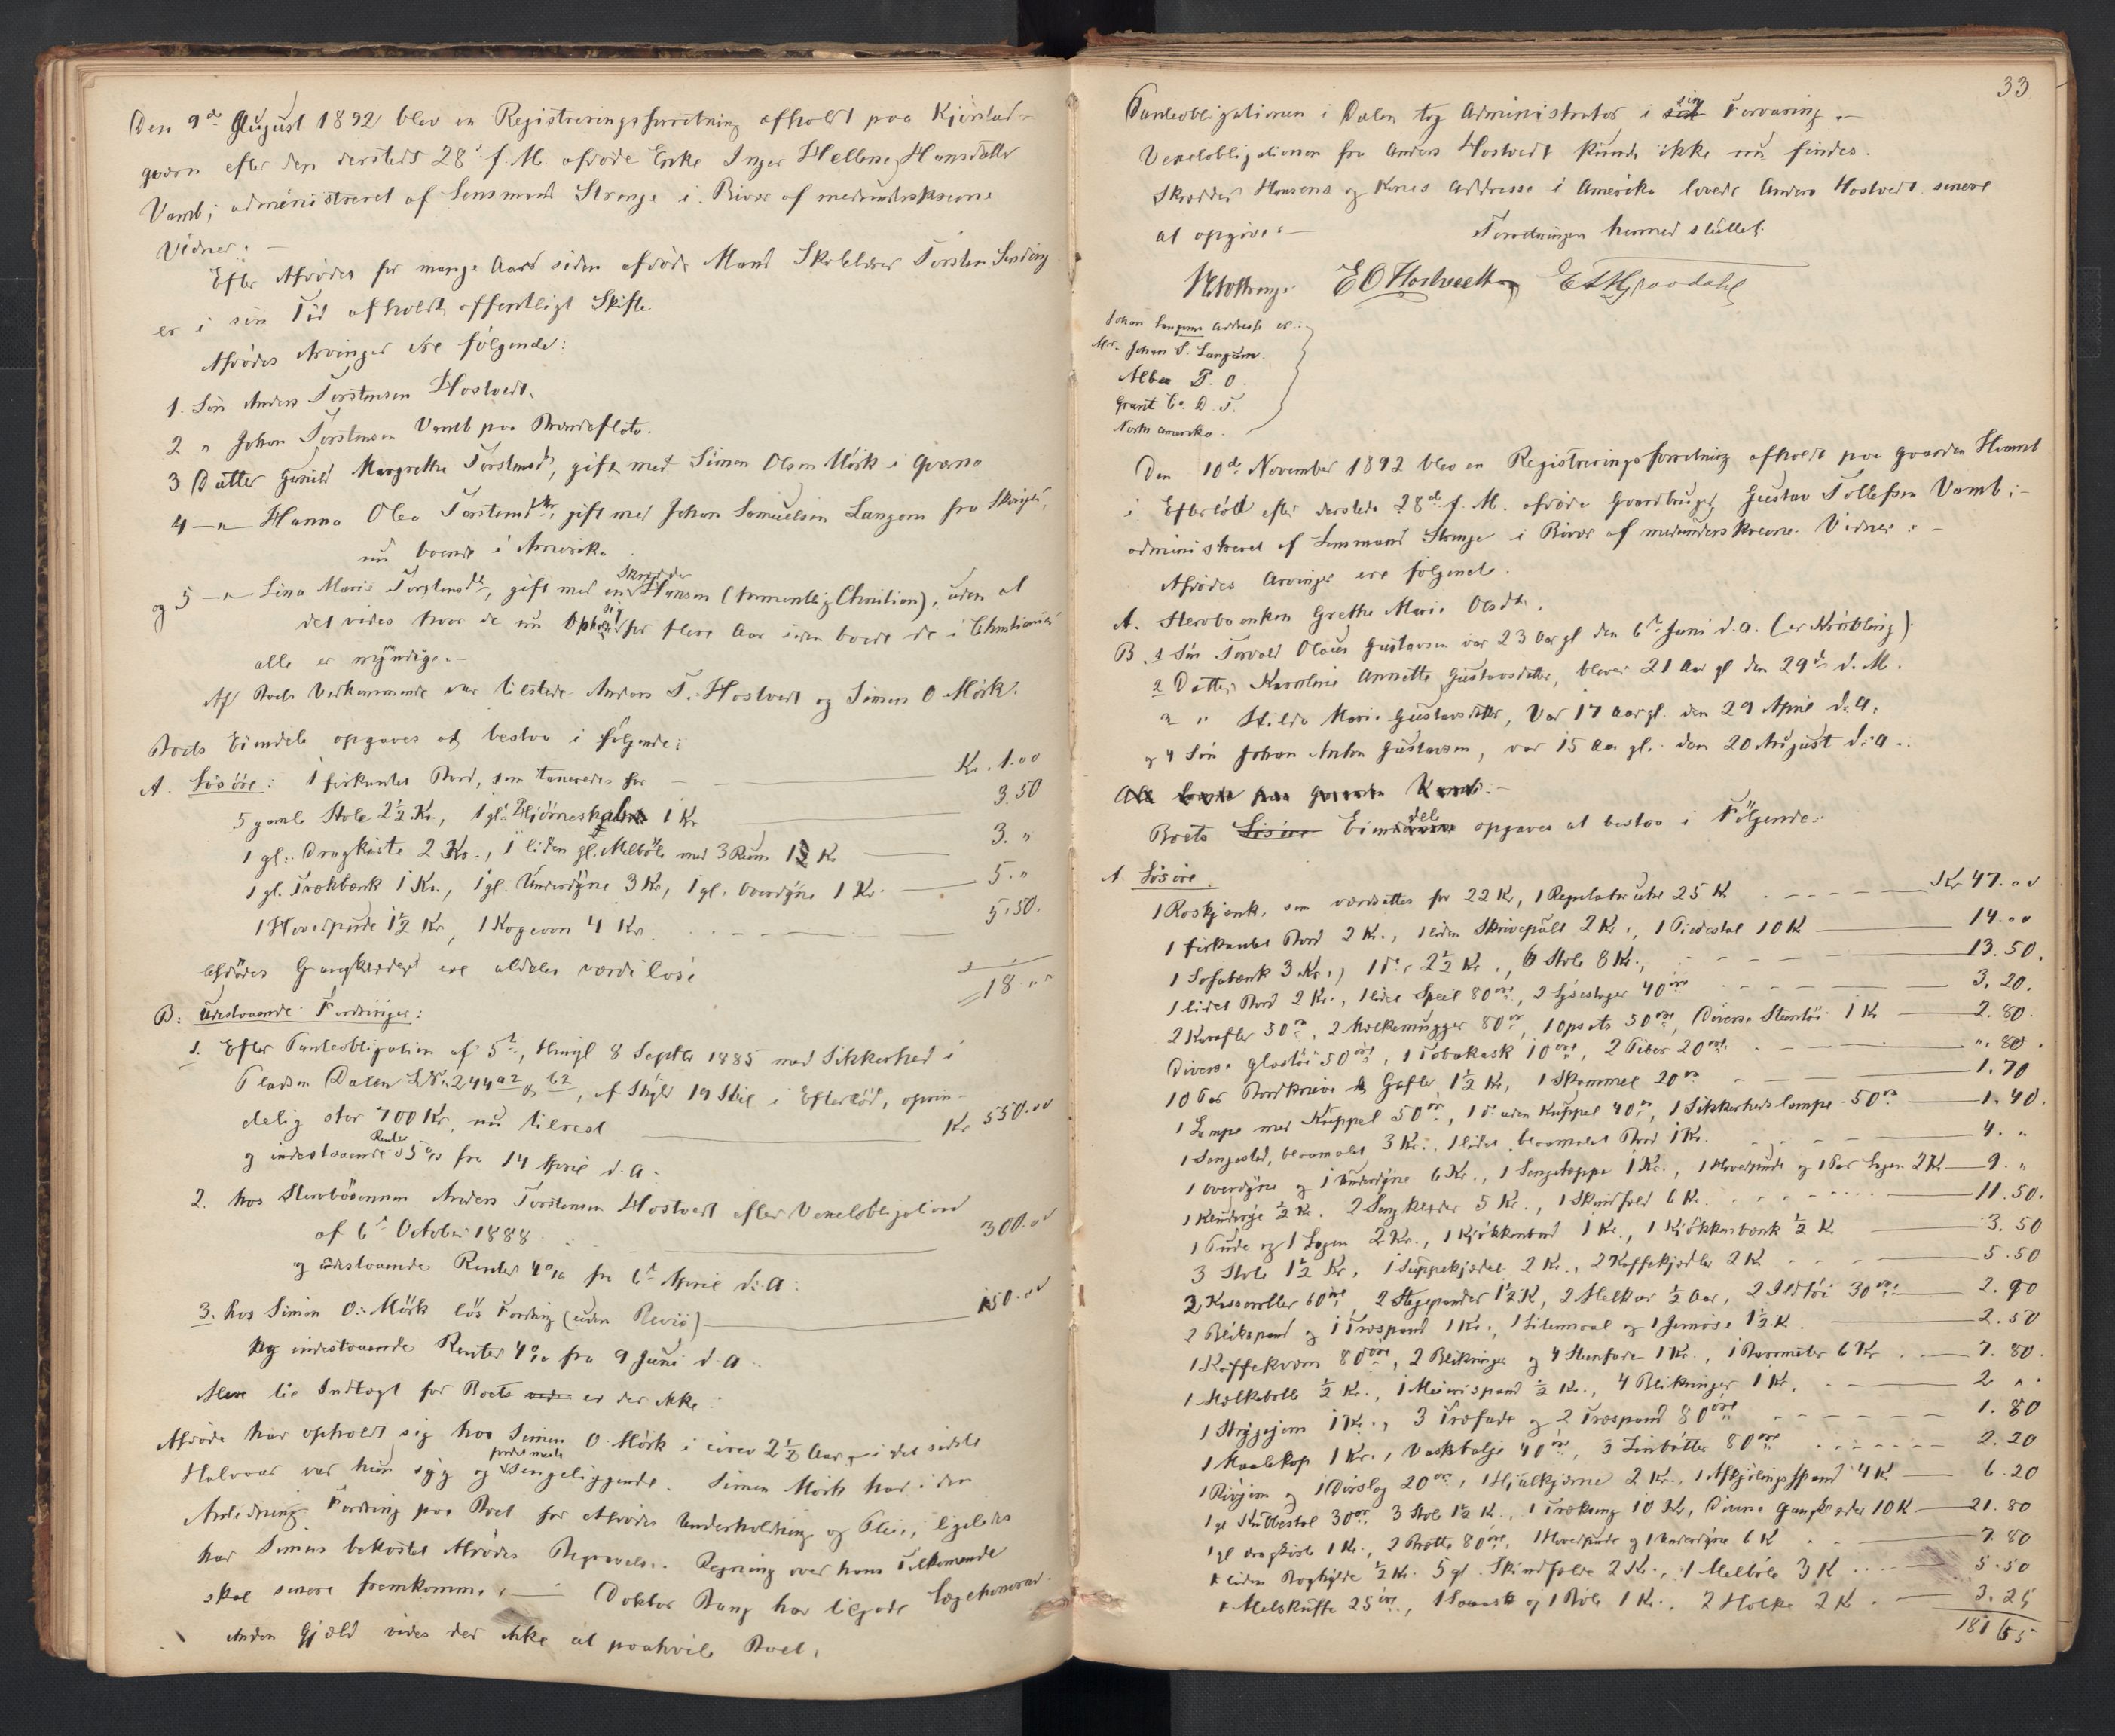 Den 9de August 1892 blev en Registreringsforretning afholdt paa
gaarn efter den dersteds 28de f. M. afdøde Enke Inger Hellene Hansdatter
Vamb; administreret af Lensmand Strange i Bivær af medunderskrevne
Vidner: —
Efter Afdødes for mange Aar siden afdøde Mand Skolelærer Torsten
er i sin Tid afholdt offentligt Skifte.
Afdødes Arvinger ere følgende:
1. Søn Anders Torstensen Hostvedt.
2 " Johan Torstensen Vamb paa
3 Datter Gunild Margrethe Torstensdtr, gift med Simen Olsen Mörk i
4 —"— Hanna Olea Torstensdtr, gift med Johan Samuelsen Langom fra
nu boende i Amerika
og 5 —"— Lina Marie Torstensdtr, gift med en Skrædder Hansen (formentlig Christian), uden at
det vides hvor de nu opholder sig, for flere Aar siden boede de i Christiania
alle er myndige. —
Af Boets Vedkommende var tilstede Anders T. Hostvedt og Simen O Mörk.
Boets Eiendele opgaves at bestaa i følgende:
A. Løsøre: 1 firkantet Bord, som taxeredes for — Kr. 1.00
5 gamle Stole 2½ Kr., 1 gl. Hjørneskab 1 Kr 3.50
1 gl. Dragkiste 2 Kr., 1 liden gl. Melbøle med 3 Rum 1 Kr 3. "
1 gl. Trækbænk 1 Kr., 1 gl. Underdyne 3 Kr, 1 gl. Overdyne 1 Kr. 5. "
1 Hovedpude 1½ Kr, 1 Kogeovn 4 Kr 5.50.
Afdødes Gangklæder ere aldeles værdiløse
18. " "
B: Udestaaende Fordringer:
1. Efter Panteobligation af 5te, thingl 8 Septbr 1885 med Sikkerhed i
Pladsen Dalen L.N. 244 a2 og b2, af Skyld 19 Skil i Efterlød, oprin-
delig stor 700 Kr, nu tilrest Kr 550.00
og indestaaende Renter 5% fra 14 April d. a.
2. hos Sterbosønnen Anders Torstensen Hostvedt efter Vexelobligation
af 6te October 1888 300.00
og indestaaende Renter 4% fra 6te April d. a:
3. hos Simen O. Mörk løs Fordring (uden Bevis) 150.00
og indestaaende Renter 4% fra 9 Juni d. a.
Mere til Indtægt for Boets er der ikke.
Afdøde har opholdt sig hos Simen O. Mörk i circa 2½ Aar, i det sidste
Halvaar var hun syg og fordetmeste sengeliggende. Simen Mörk har i den
Anledning Fordring paa Boet for Afdødes Underholdning og Pleie, ligeledes
har Simen bekostet Afdødes Begravelse. Regning over hans Tilkomende
skal senere fremkomme. — Doktor Bang har tilgode Lægehonorar.
Anden Gjæld vides der ikke at paahvile Boet.
33
Panteobligationen i Dalen tog Administrator i sin Forvaring. —
Vexelobligationen fra Anders Hostvedt kunde ikke nu findes.
Skrædder Hansens og Kones Addresse i Amerika lovede Anders Hostvedt senere
at opgive. — Forretningen hermed sluttet.
E O Hostvedt
Johan Langums Addresse er:
Mr. Johan S. Langum.
Albee P. O.
Grant Co. D. T.
North Amerika.
Den 10de November 1892 blev en Registreringsforretning afholdt paa gaarden Hvamb
i Efterlöd efter dersteds 28de f. M. afdøde Gaardbruger Gustav Tollefsen Vamb; —
administreret af Lensmand Strange i Bivær af medunderskrevne Vidner: —
Afdødes Arvinger ere følgende.
A. Sterboenken Grethe Marie Olsdtr.
B. 1 Søn Torvald Olaus Gustavsen var 23 Aar gl den 6te Juni d. a. (er Krøbling)
2 Datter Karoline Annette Gustavsdatter, bliver 21 Aar gl den 29de d. M.
3 " Hilda Marie Gustavsdatter, Var 17 Aar gl. den 29 April d. a.
og 4 Søn Johan Anton Gustavsen, var 15 Aar gl. den 20 August d. a.
Alle boende paa Gaarden Vamb. —
Boets Løsøre Eiendele opgaves at bestaa i Følgende:
A Løsøre.
1 Roskjenk, som værdsattes for 22 Kr, 1 Regulator Uhr 25 K Kr 47.00
1 firkantet Bord 2 Kr., 1 liden Skrivepult 2 Kr., 1 Piedestal 10 K 14.00
1 Sofabænk 3 Kr., 1 do. 2½ Kr., 6 Stole 8 Kr., 13.50.
1 lidet Bord 2 Kr., 1 lidet Speil 80 øre, 2 Lysestager 40 øre 3.20.
2 Karafler 30 øre, 2 Melkemugger 80 øre, 1 50 øre, Diverse Stentøi 1 K 2.80.
Diverse glastøi 50 øre, 1 Tobakask 10 øre, 2 Piber 20 øre ". 80.
10 Par Bordknive & Gafler 1½ Kr, 1 Skammel 20 øre 1.70
1 Lampe med Kuppel 50 øre, 1 do uden Kuppel 40 øre, 1 Sikkerhedslampe 50 øre 1.40.
1 Sengested, blaamalet 3 Kr., 1 lidet blaamalet Bord 1 Kr. 4. "
1 Overdyne og 1 Underdyne 6 Kr., 1 Sengetæppe 1 Kr., 1 Hovedpude og 1 Par Lagen 2 K 9. "
1 ½ Kr. 2 Sengklæder 5 Kr., 1 Skindfeld 6 Kr. 11.50.
1 Pude og 1 Lagen 2 Kr., 1 Kjøkkenbord 1 Kr., 1 Kjøkkenbænk ½ K 3.50
3 Stole 1½ Kr, 1 Suppekjædel 2 Kr., 2 Kaffekjedler 2 K 5.50
2 Kasseroller 60 øre, 2 Stegepander 1½ K, 2 ½, 2 Ildtøi 30 øre 2.90
2 Blikspand og 1 Træspand 1 Kr., 1 1½ K. 2.50
1 Kaffekværn 80 øre, 2 Blikringe og 4 Steenfade 1 Kr., 1 Barometer 6 Kr 7.80.
1 Melkebolle ½ Kr., 1 Meierispand ½ Kr., 4 Blikringer 1 Kr. 2 " "
1 Strygejern 1 Kr., 3 Træfade og 2 Træspand 80 øre 1.80
1 Maalekop 1 Kr., Vaskbalje 40 øre, 3 80 øre 2.20
1 Rivjern og 1 Dørslag 20 øre, 1 Hjulkjærne 2 Kr., 1 Afkjølingsspand 4 K 6.20
1 gl 30 øre, 3 Stole 1½ K., 1 10 Kr, Diverse Gangklæder 10 K 21.80
1 gl dragkiste 1 Kr., 2 80 øre, 1 Hovedpude og 1 Underdyne 6 K 7.80
1 liden Boghylde ½ Kr. 5 gl. Skindfelde 2 Kr., 1 Melbøle 3 K 5.50
1 Melskuffe 25 øre, 1 og 1 Bøle 1 Kr., 2 Holke 2 K 3.25
181 55